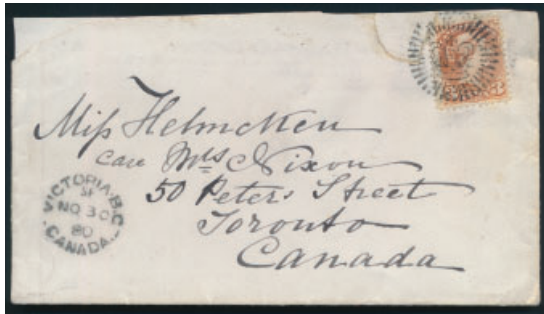 Miss Helmcken
care Mrs Nixon
50 Peters Street
Toronto
Canada
VICTORIA·B.C
NO 30
80
CANADA